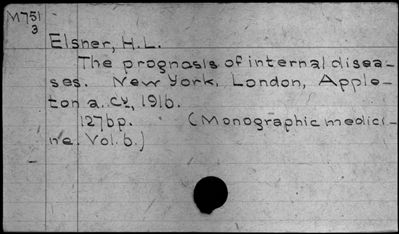 M751
3
Elsner, H.L.
The prognosis of internal disea-
ses. New York, London, Apple-
ton a. Cy, 1916.
127bp. (Monographic medici-
ne. Vol. 6.)